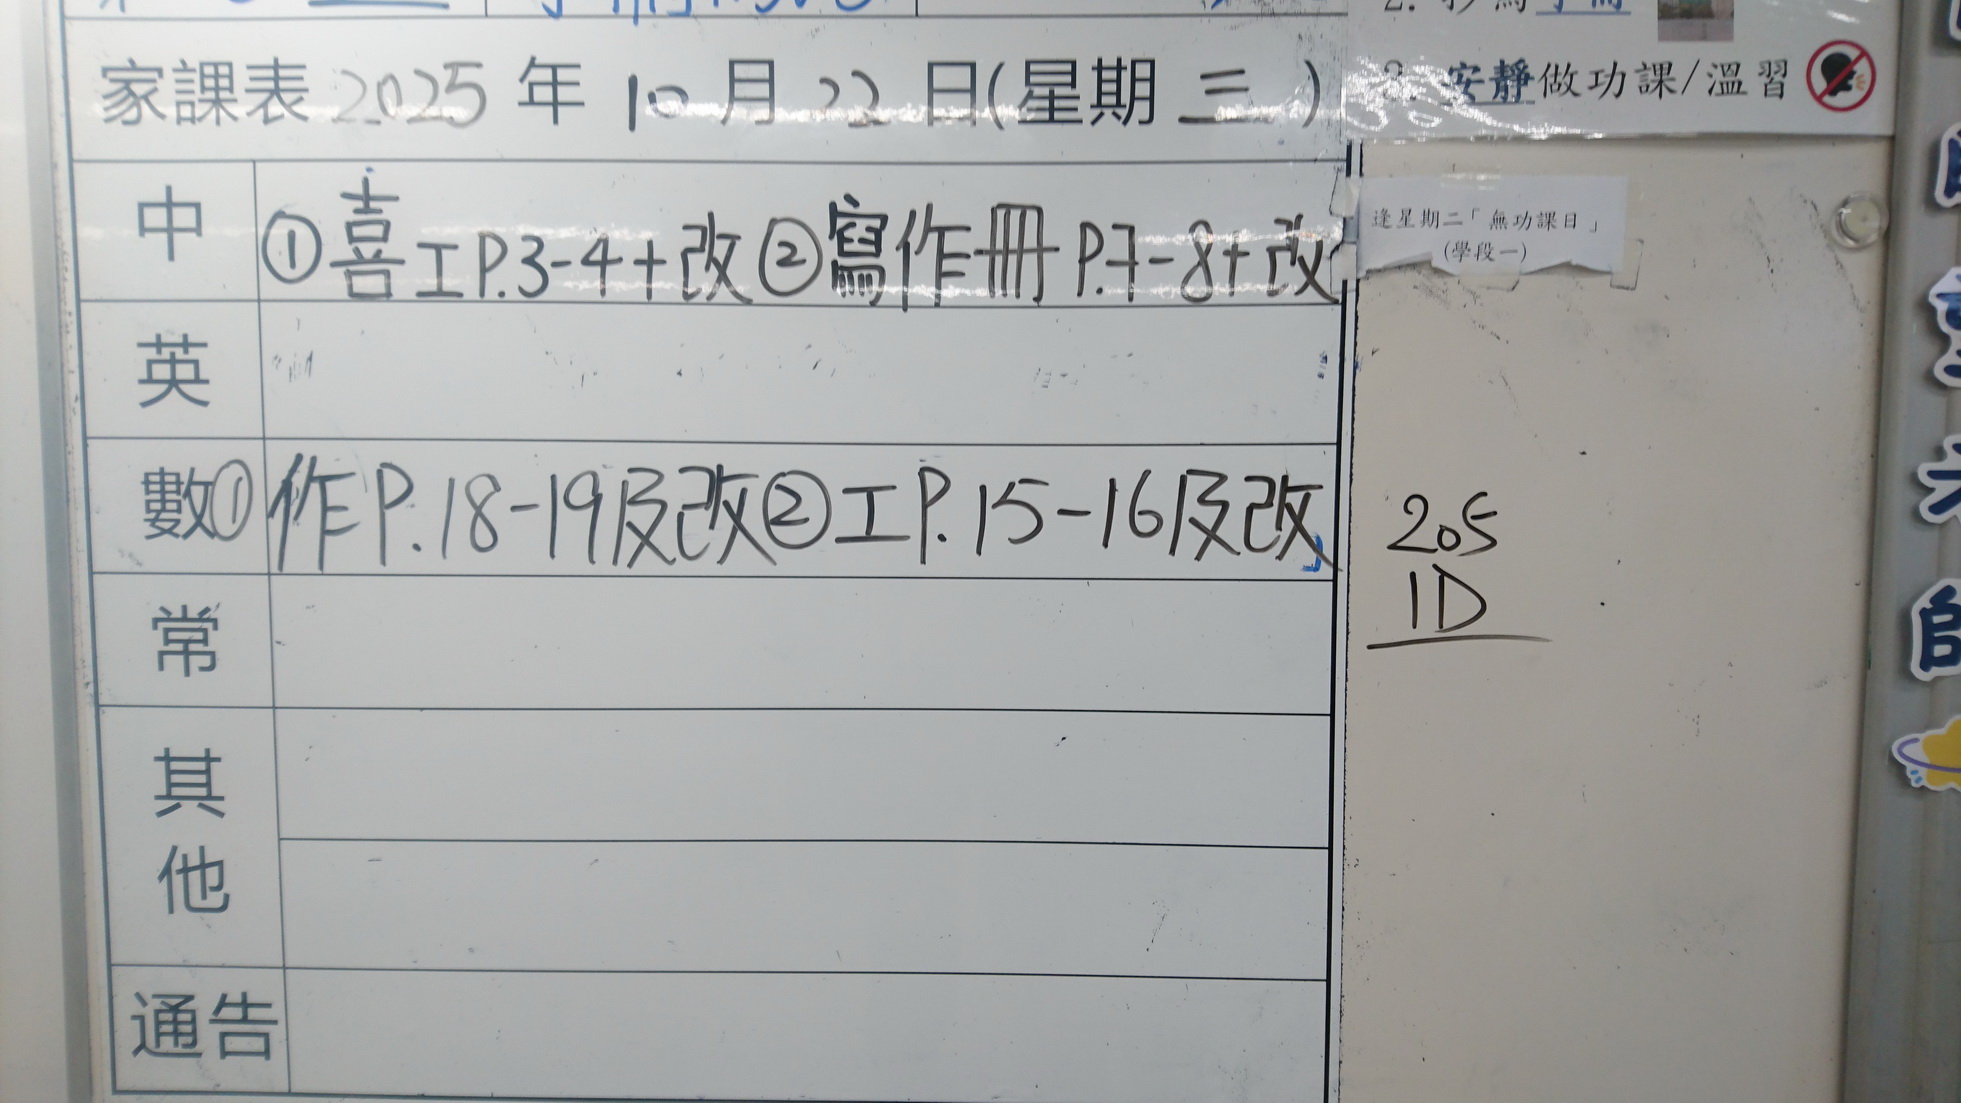 家課表 2025 年 10 月 22 日(星期 三 )
3. 安靜做功課/溫習
中 ①喜工P.3-4+改 ②寫作冊 P.7-8+改
逢星期二「無功課日」
(學段一)
英
數 ①作P.18-19及改 ②工P.15-16及改
205
1D
常
其他
通告